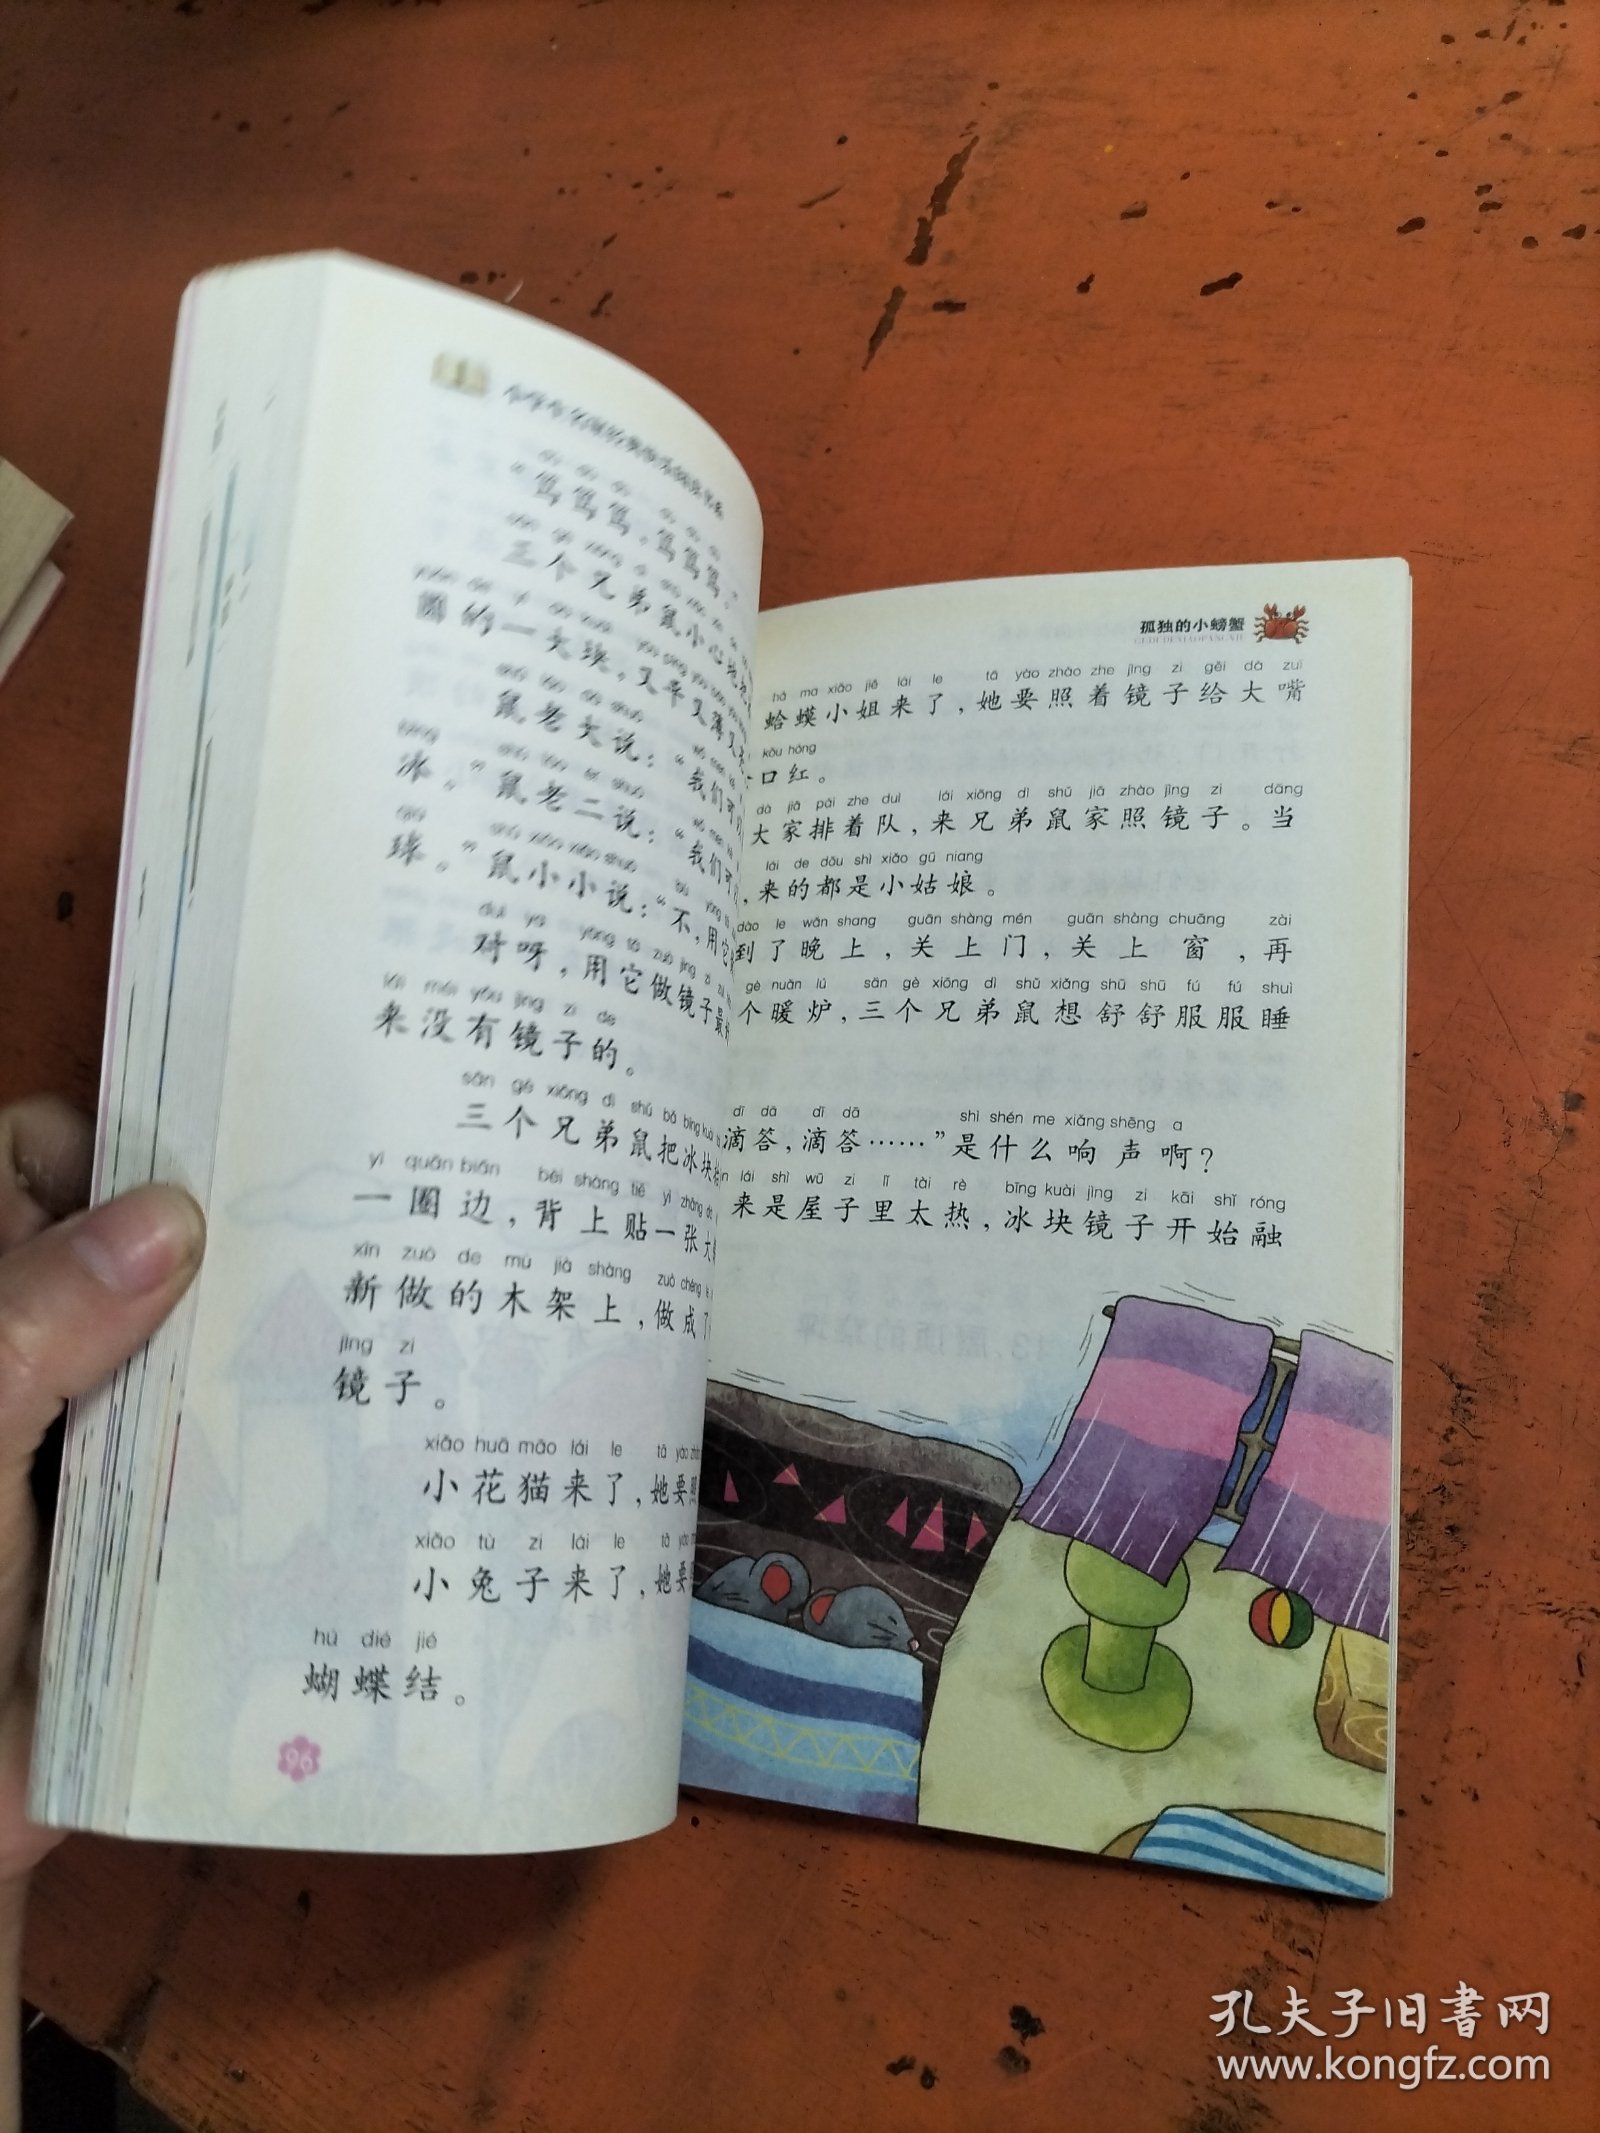 dǔ dǔ dǔ dǔ dǔ dǔ
“笃笃笃，笃笃笃。
sān gè xiōng dì shǔ xiǎo xīn
三个兄弟鼠小心
圆的一大块，又平又薄又
shǔ lǎo dà shuō wǒ men
鼠老大说：“我们可
bīng shǔ lǎo èr shuō wǒ men
冰。”鼠老二说：“我们可
qiú shǔ xiǎo xiǎo shuō bù yòng tā
球。”鼠小小说：“不，用它
duì ya yòng tā zuò jìng zi zuì
对呀，用它做镜子最
lái méi yǒu jìng zi de
来没有镜子的。
sān gè xiōng dì shǔ bǎ bīng kuài
三个兄弟鼠把冰块
yì quān biān bèi shàng tiē yì zhāng dà
一圈边，背上贴一张大
xīn zuò de mù jià shàng zuò chéng le
新做的木架上，做成了
jìng zi
镜子。
xiǎo huā māo lái le tā yào zhào
小花猫来了，她要照
xiǎo tù zi lái le tā yào
小兔子来了，她要
hú dié jié
蝴蝶结。
96
孤独的小螃蟹
GUDUDEXIAOPANGXIE
há ma xiǎo jiě lái le tā yào zhào zhe jìng zi gěi dà zuǐ
蛤蟆小姐来了，她要照着镜子给大嘴
kǒu hóng
口红。
dà jiā pái zhe duì lái xiōng dì shǔ jiā zhào jìng zi dāng
大家排着队，来兄弟鼠家照镜子。当
lái de dōu shì xiǎo gū niang
，来的都是小姑娘。
dào le wǎn shang guān shàng mén guān shàng chuāng zài
到了晚上，关上门，关上窗，再
gè nuǎn lú sān gè xiōng dì shǔ xiǎng shū shū fú fú shuì
个暖炉，三个兄弟鼠想舒舒服服睡
dī dā dī dā shì shén me xiǎng shēng a
滴答，滴答……”是什么响声啊？
lái shì wū zi lǐ tài rè bīng kuài jìng zi kāi shǐ róng
来是屋子里太热，冰块镜子开始融
孔夫子旧书网
www.kongfz.com